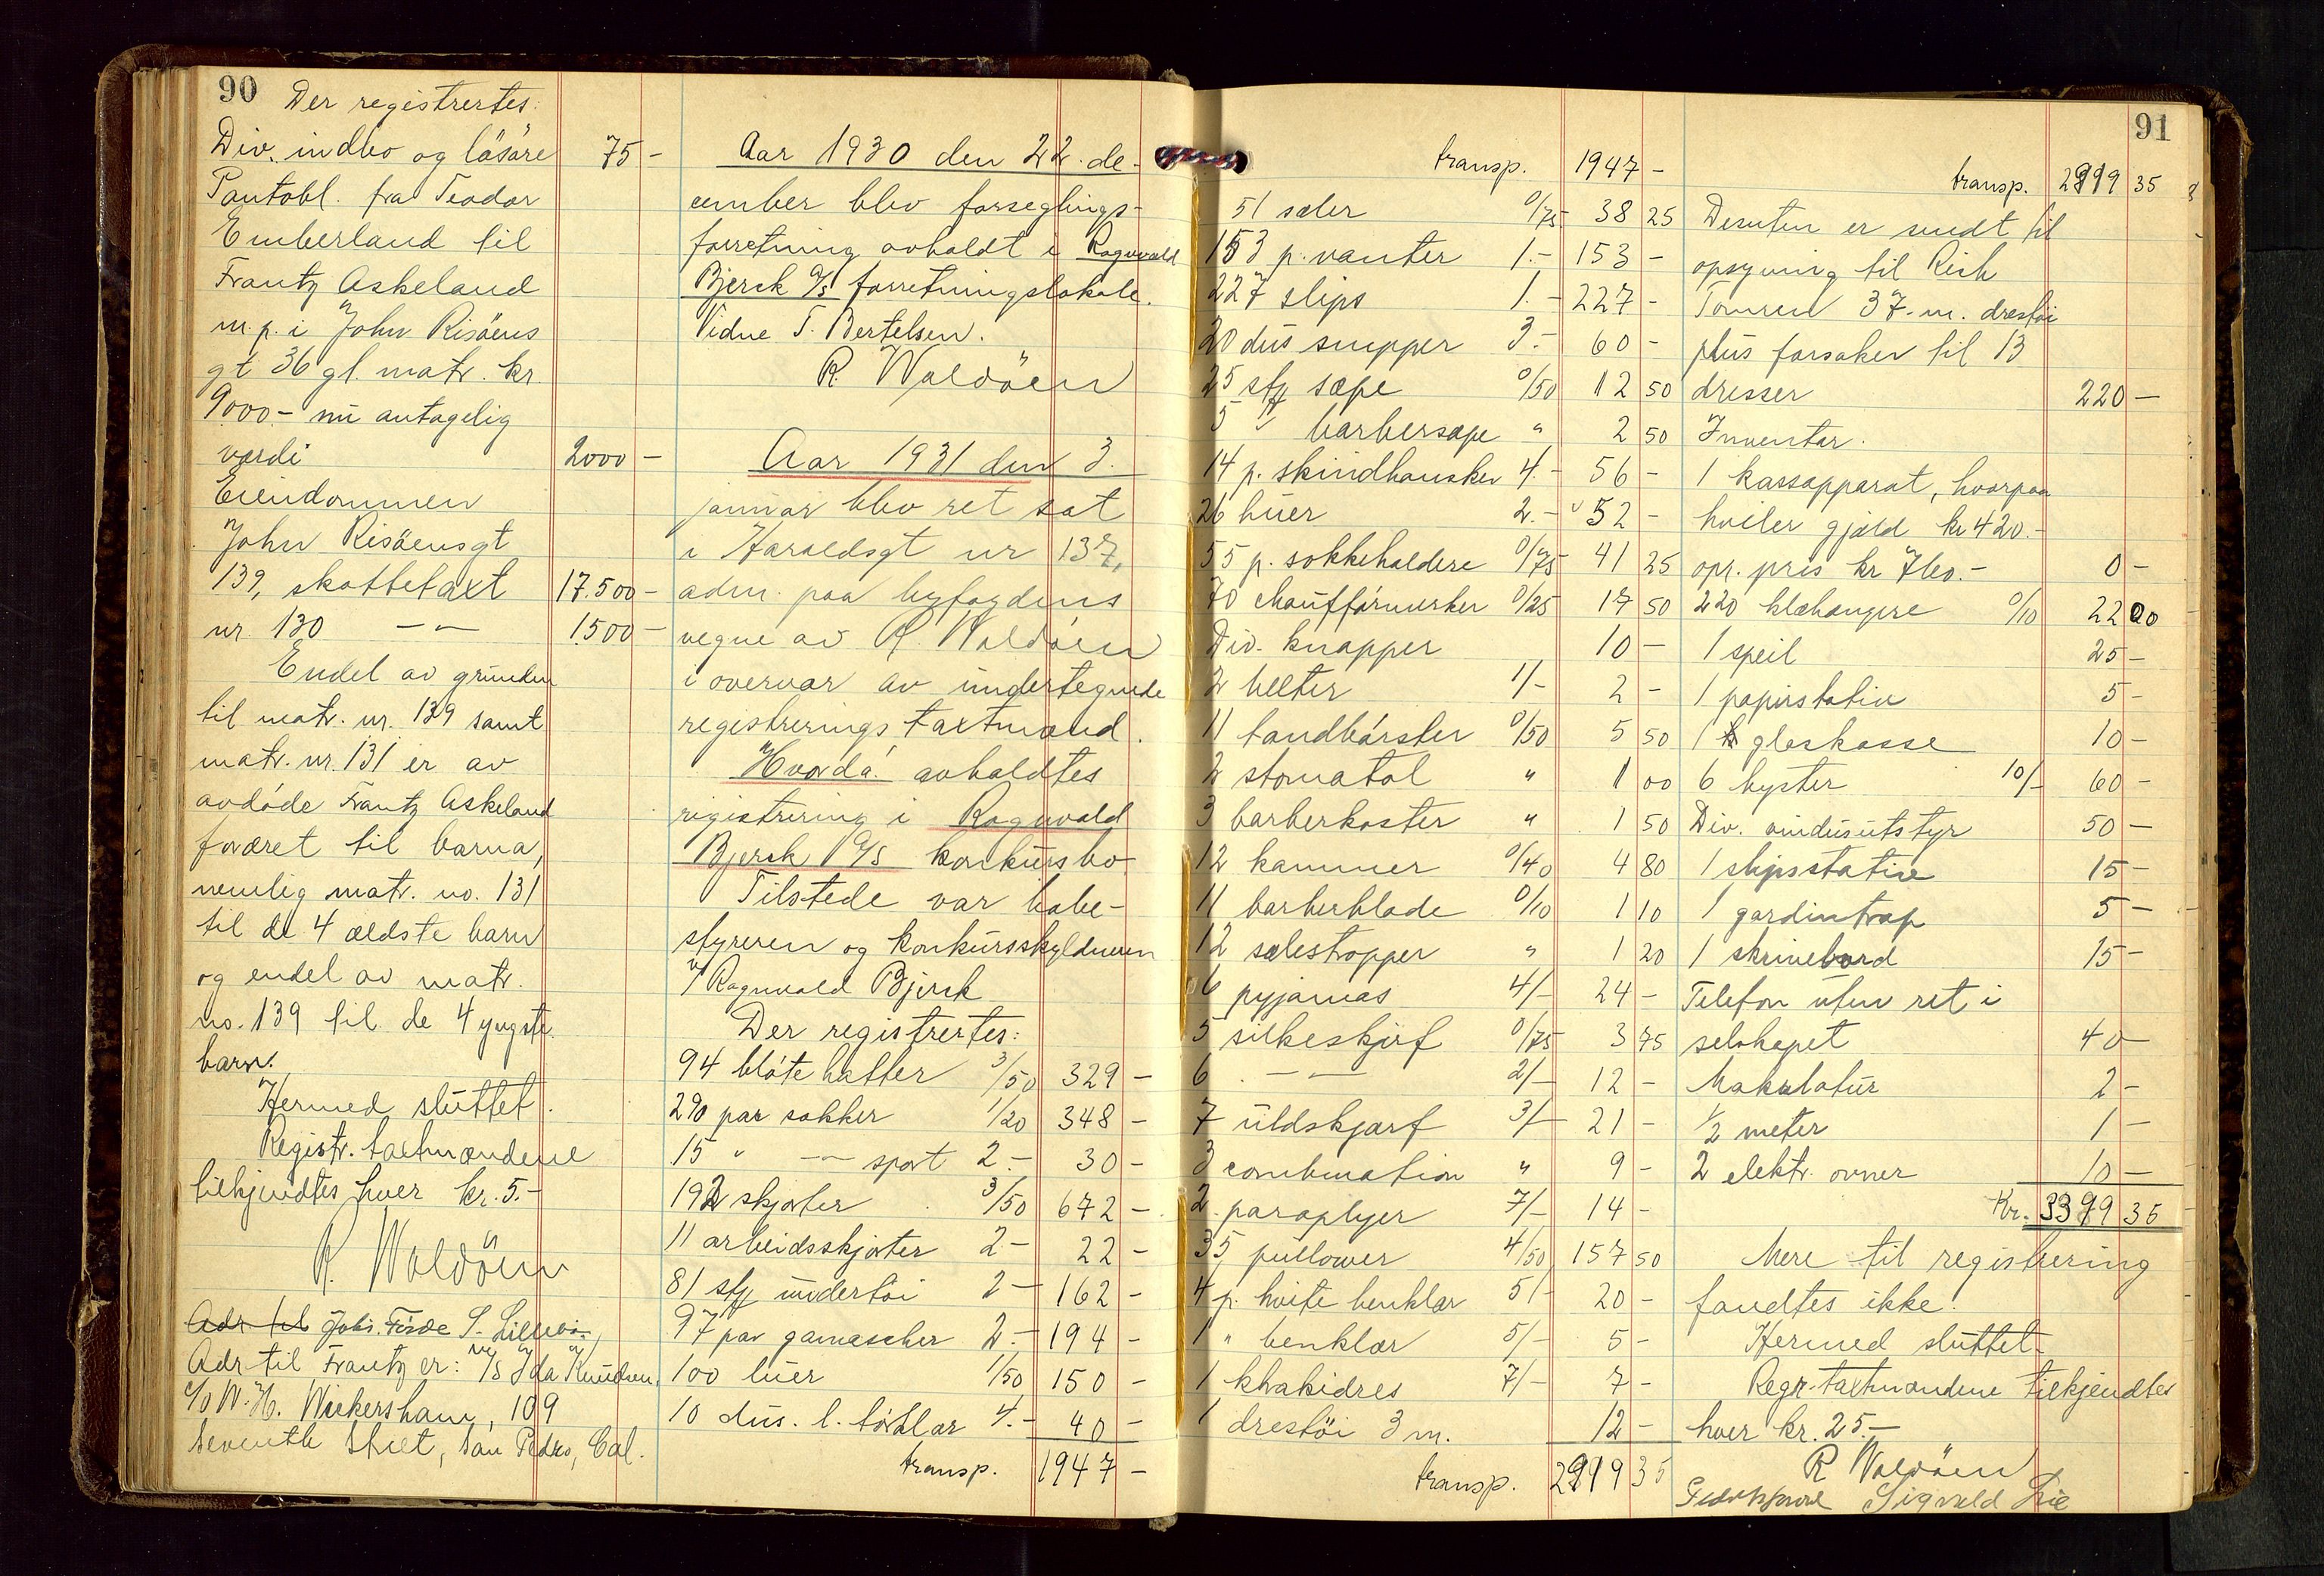 90
Der registrertes:
Div. indbo og lösöre 75 -
Pantobl. fra Teodor
Emberland til
Frantz Askeland
m. p. i John Risöens
gt 36 gl. matr. kr.
9000.- nu antagelig
værdi 2000 -
Eiendommen
John Risöensgt
139, skattetaxt 17.500 -
nr. 130 — " — 1500 -
Endel av grunden
til matr. nr. 139 samt
matr. nr. 131 er av
avdöde Frantz Askeland
foræret til barna,
nemlig matr. no. 131
til de 4 ældste barn
og endel av matr.
no. 139 til de 4 yngste
barn.
Hermed sluttet.
Registr. taxtmændene
tilkjendtes hver kr. 5.-
R. Waldöen
Adr til Johs.
Adr til Frantz er: M/S Ida Knudsen,
c/o W. H. Wickersham, 109
Seventh Street, San Pedro, Cal.
Aar 1930 den 22. de-
cember blev forseglings-
forretning avholdt i Ragnvald
Bjerck A/S forretningslokale.
Vidne T. Bertelsen.
R. Waldöen
Aar 1931 den 3.
januar blev ret sat
i Haraldsgt nr 137,
adm. paa byfogdens
vegne av R. Waldöen
i overvær av undertegnede
registrerings taxtmænd.
Hvorda avholdtes
registrering i Ragnvald
Bjerck A/S konkursbo
Tilstede var bobe-
styreren og konkursskyldneren
v/ Ragnvald Bjerck
Der registrertes:
94 blöte hatter 3/50 329 -
290 par sokker 1/20 348 -
15 " — " — sport 2.- 30 -
192 skjorter 3/50 672 -
11 arbeidsskjorter 2- 22 -
81 stk undertöi 2- 162 -
97 par gamascher 2.- 194 -
100 luer 1/50 150 -
10 dus. l. törklær 4.- 40 -
transp. 1947 -
91
transp. 1947 -
51 seler 0/75 38 25
153 p. vanter 1.- 153 -
227 slips 1.- 227 -
20 dus snipper 3.- 60 -
25 stk sæpe 0/50 12 50
5 " barbersæpe " 2 50
14 p. skindhansker 4.- 56 -
26 huer 2.- 52 -
55 p. sokkeholdere 0/75 41 25
70 chaufförmerker 0/25 17 50
Div. knapper 10 -
2 belter 1/- 2 -
11 tandbörster 0/50 5 50
2 stomatol " 1 00
3 barberkoster " 1 50
12 kammer 0/40 4 80
11 barberblade 0/10 1 10
12 selestropper " 1 20
6 pyjamas 4/- 24 -
5 silkeskjerf 0/75 3 75
6 — " — 2/- 12 -
7 uldskjærf 3/- 21 -
3 combination " 9 -
2 paraplyer 7/- 14 -
35 pullower 4/50 157 50
4 p. hvite benklær 5/- 20 -
1 " benklær 5/- 5 -
1 khakidres 7/- 7 -
1 drestöi 3 m. 12 -
transp. 2919 35
transp. 2919 35
Desuten er sendt til
opsyning til Rich
Tomren 37-m. drestöi
plus forsaker til 13
dresser 220 -
Inventar.
1 kassapparat, hvorpaa
hviler gjæld kr 420.-
opr. pris kr 760.- 0 -
220 klæhængere 0/10 22 00
1 speil 25 -
1 papirstativ 5 -
1 glaskasse 10 -
6 byster 10/- 60 -
Div. vindusutstyr 50 -
1 slipsstativ 15 -
1 gardintrap 5 -
1 skrivebord 15 -
Telefon uten ret i
selskapet 40 -
Makulatur 2 -
1/2 meter 1 -
2 elektr. ovner 10 -
Kr. 3399 35
Mere til registrering
fandtes ikke.
Hermed sluttet.
Regr. taxtmændene tilkjendtes
hver kr. 25.-
R Waldöen
Sigvald Lie